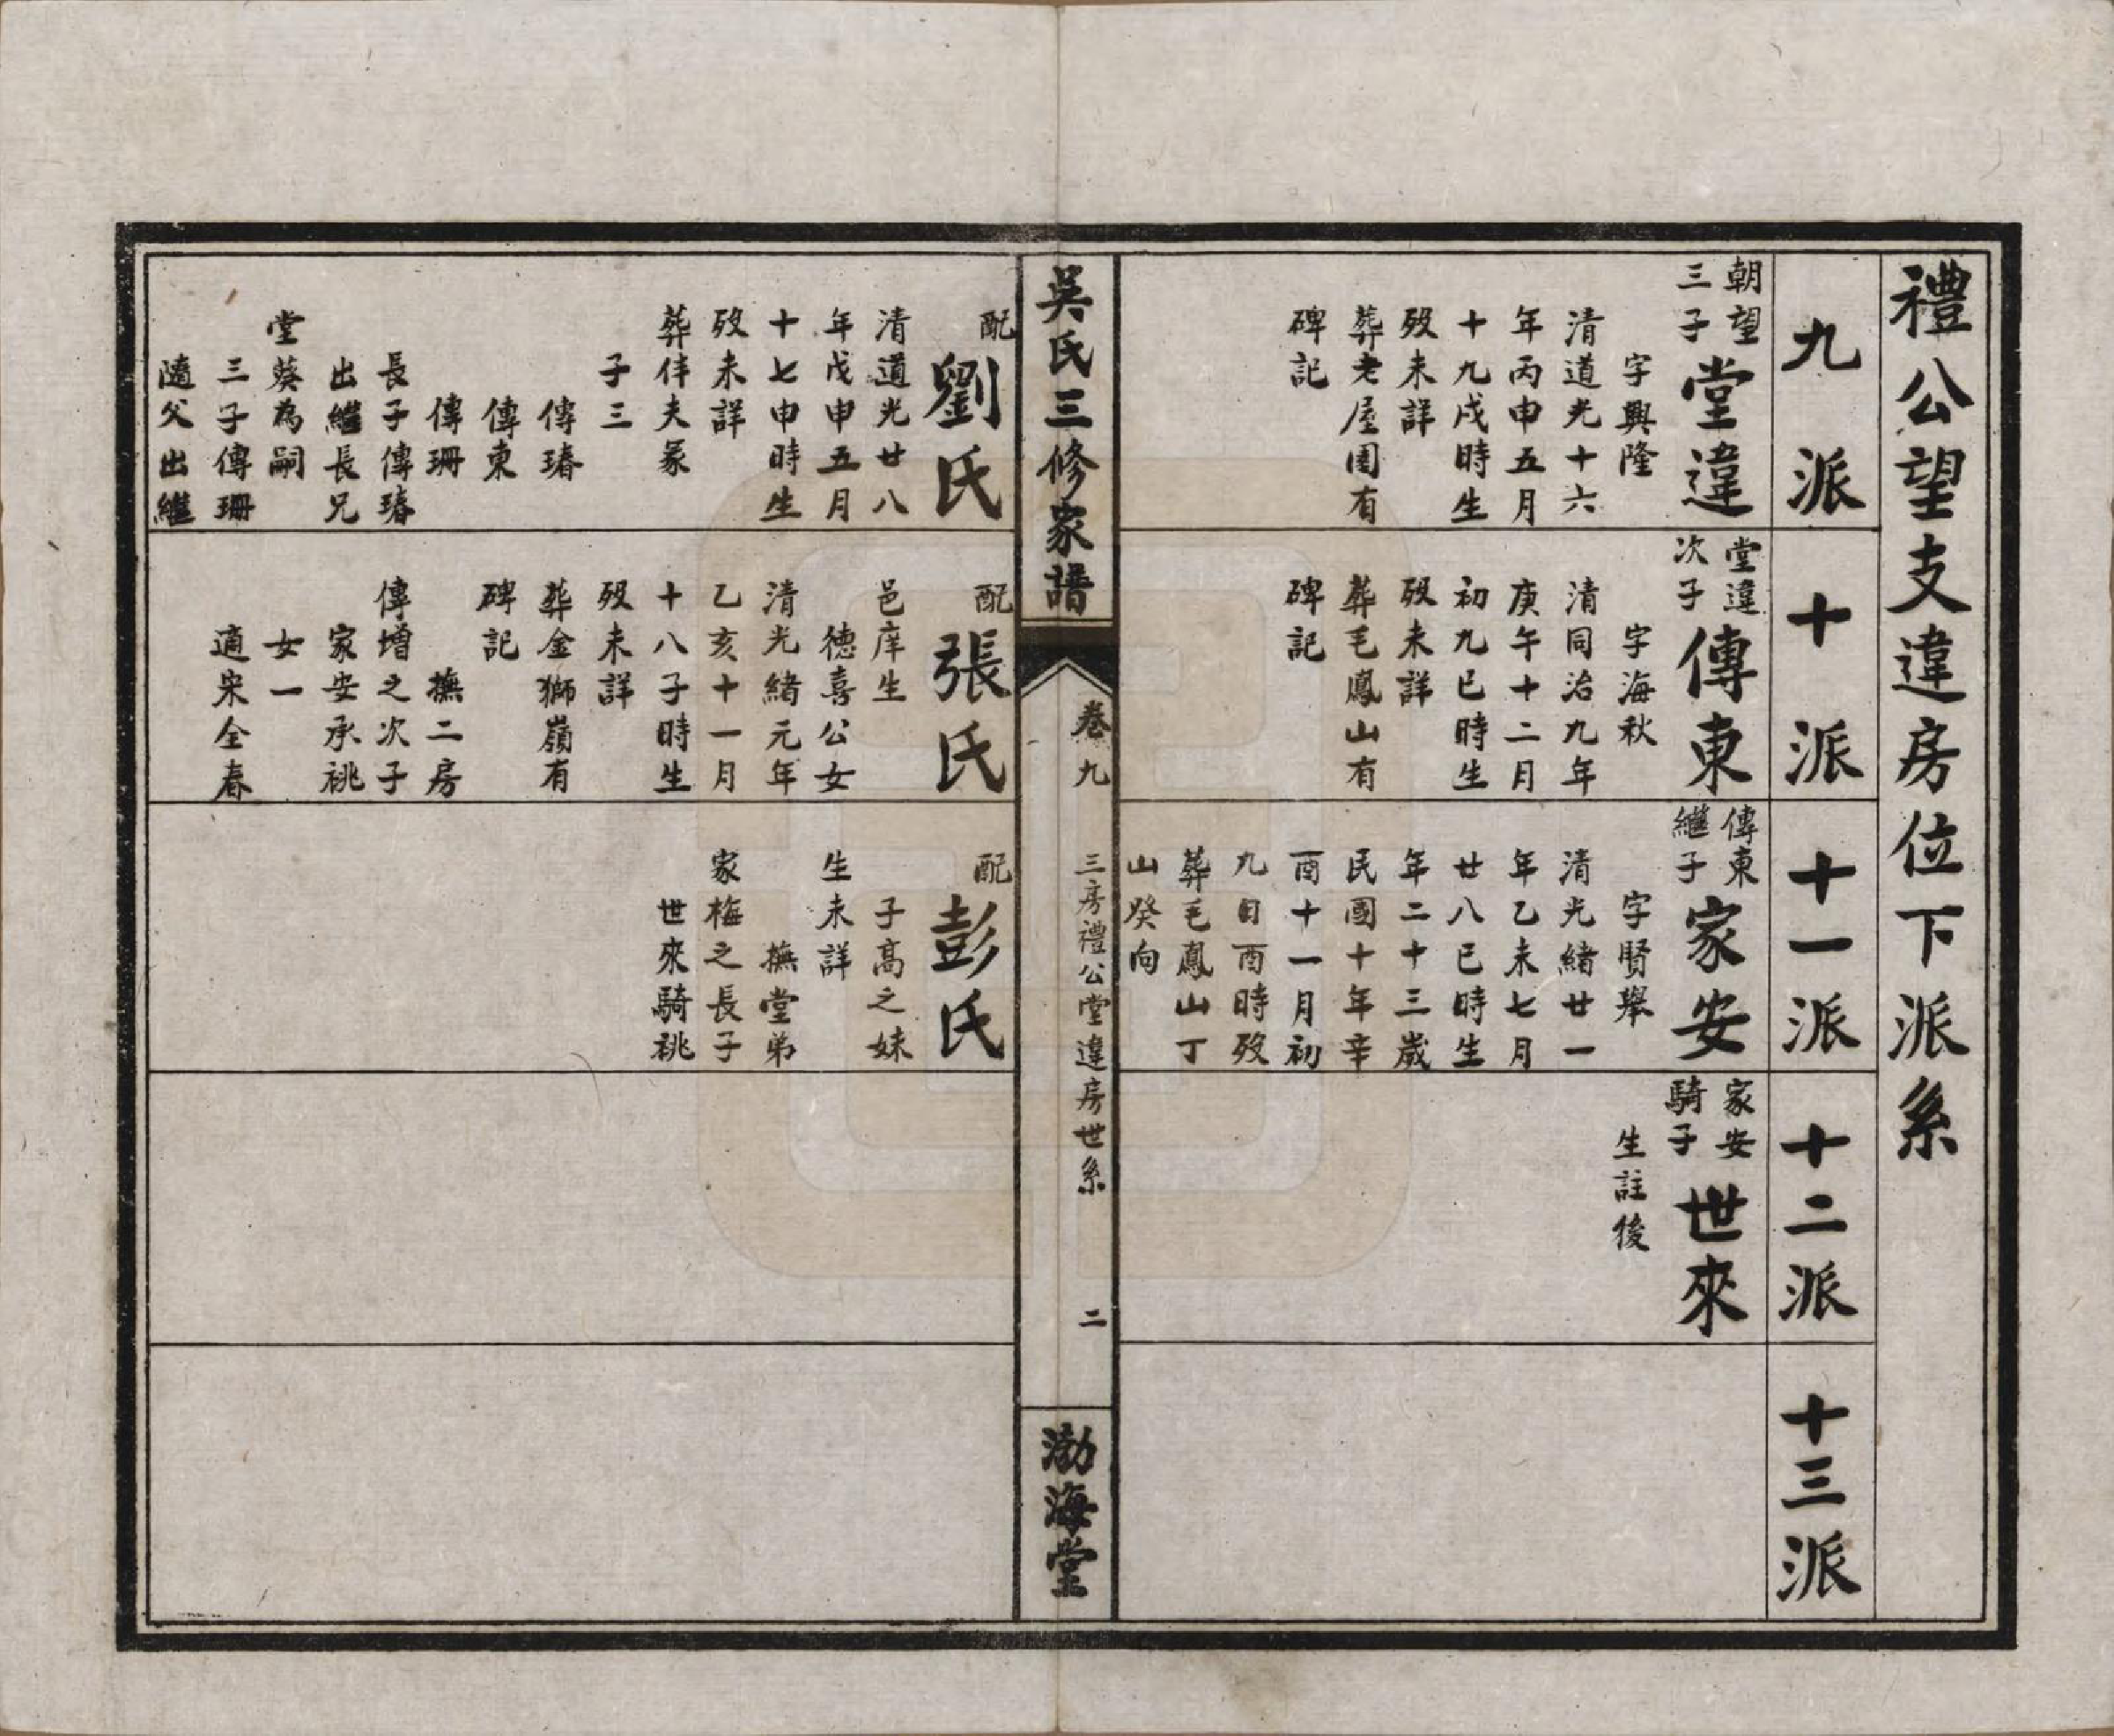 禮公望支違房位下派系
九派
朝望
三子
堂違
字興隆
清道光十六
年丙申五月
十九戌時生
歿未詳
葬老屋園有
碑記
十派
堂違
次子
傳東
字海秋
清同治九年
庚午十二月
初九巳時生
歿未詳
葬毛鳳山有
碑記
十一派
傳東
繼子
家安
字賢舉
清光緒廿一
年乙未七月
廿八巳時生
年二十三歲
民國十年辛
酉十一月初
九日酉時歿
葬毛鳳山丁
山癸向
十二派
家安
騎子
世來
生註後
十三派
吳氏三修家譜
卷九
三房禮公堂違房世系
二
渤海堂
配
劉氏
清道光廿八
年戊申五月
十七申時生
歿未詳
葬伴夫冢
子三
傳瑃
傳東
傳珊
長子傳瑃
出繼長兄
堂葵為嗣
三子傳珊
隨父出繼
配
張氏
邑庠生
德喜公女
清光緒元年
乙亥十一月
十八子時生
歿未詳
葬金獅嶺有
碑記
撫二房
傳增之次子
家安承祧
女一
適宋全春
配
彭氏
子高之妹
生未詳
撫堂弟
家梅之長子
世來騎祧